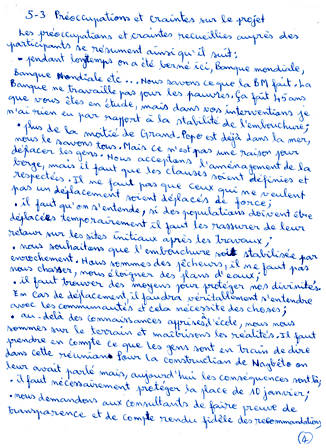 5-3 Préoccupations et craintes sur le projet
Les préoccupations et craintes recueillies auprès des
participants se résument ainsi qu'il suit:
• pendant longtemps on a été berné ici, Banque mondiale,
Banque Mondiale etc... Nous savons ce que la BM fait. La
Banque ne travaille pas pour les pauvres. Ça fait 45 ans
que vous êtes en étude, mais dans vos interventions je
n'ai rien eu par rapport à la stabilité de l'embouchure;
• plus de la moitié de Grand-Popo est déjà dans la mer,
nous le savons tous. Mais ce n'est pas une raison pour
déplacer les gens. Nous acceptons l'aménagement de la
berge, mais il faut que les clauses soient définies et
respectées. Il ne faut pas que ceux qui ne veulent
pas un déplacement soient déplacés de force;
• il faut qu'on s'entende, si des populations doivent être
déplacées temporairement il faut les rassurer de leur
retour sur les sites initiaux après les travaux;
• nous souhaitons que l'embouchure soit stabilisée par
enrochement. Nous sommes des pêcheurs, il ne faut pas
nous chasser, nous éloigner des plans d'eaux;
• il faut trouver des moyens pour protéger nos divinités.
En cas de déplacement, il faudra véritablement s'entendre
avec les communautés et cela nécessite des choses;
• au-delà des connaissances apprises à l'école, nous nous
sommes sur le terrain et maîtrisons les réalités. Il faut
prendre en compte ce que les gens sont en train de dire
dans cette réunion. Pour la construction de Nagbéto on
leur avait parlé mais, aujourd'hui les conséquences sont là;
• il faut nécessairement protéger la place de 10 janvier;
• nous demandons aux consultants de faire preuve de
transparence et de compte rendu fidèle des recommandations
4